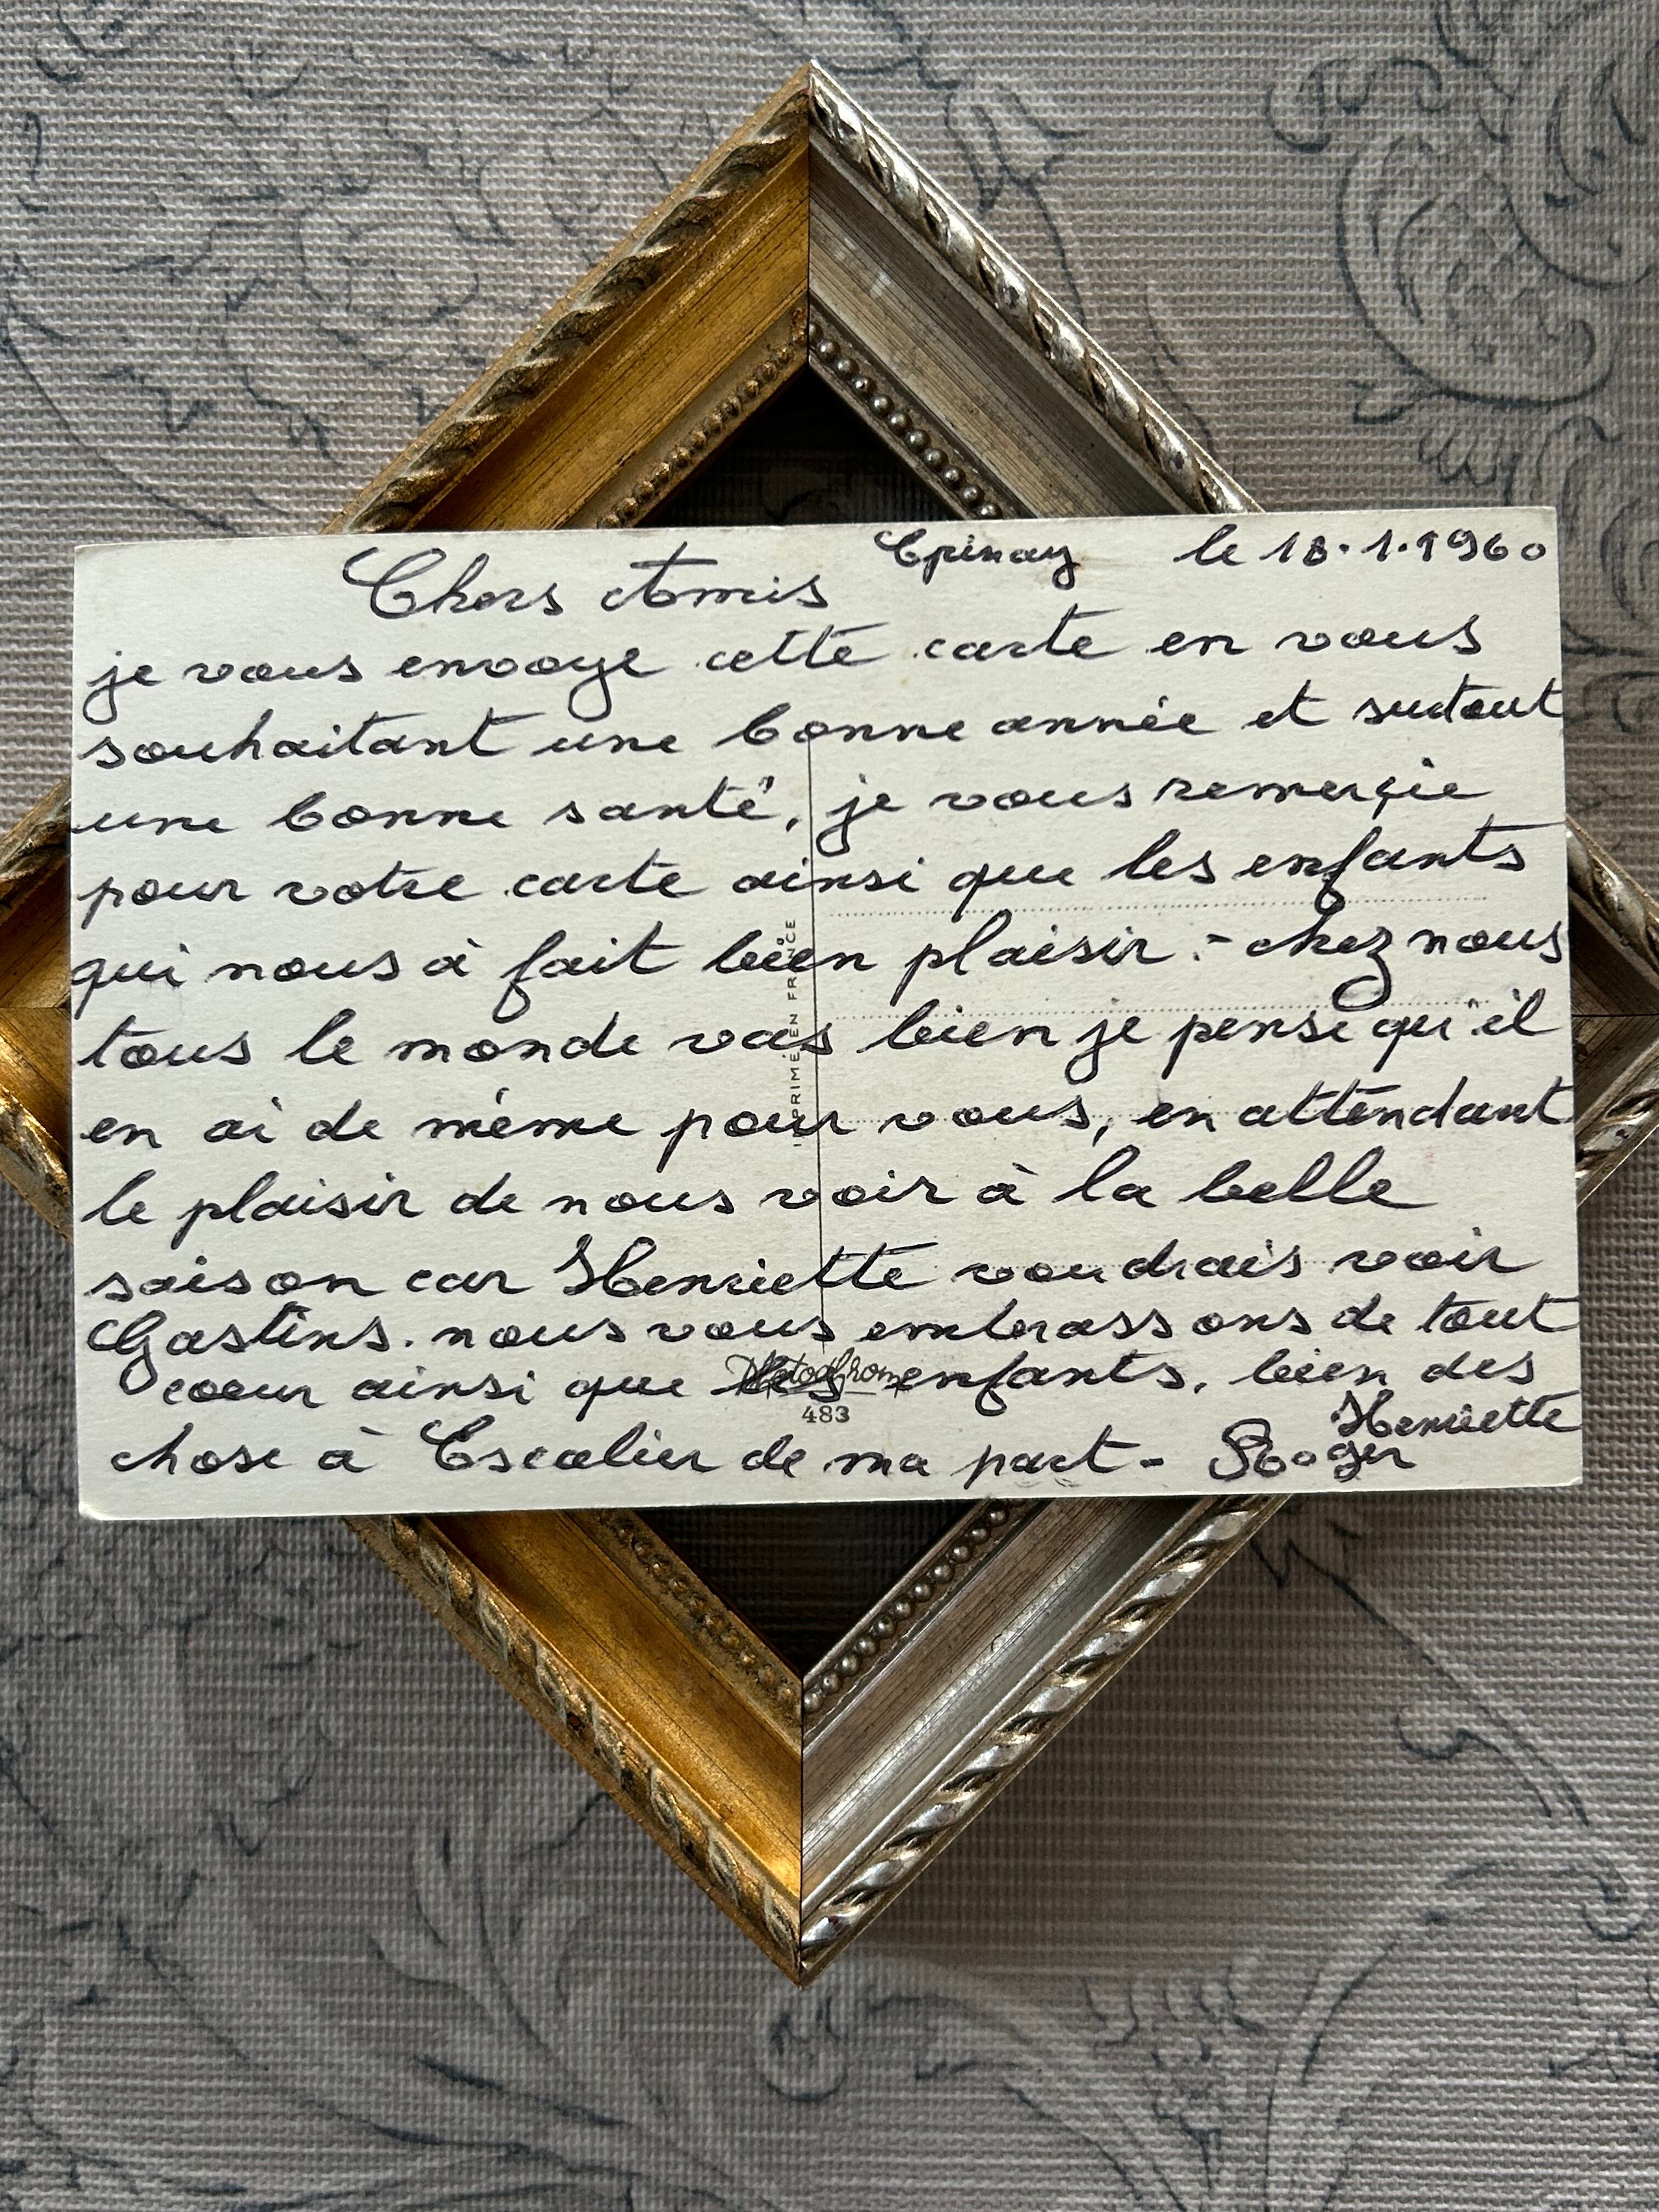 Epinay le 18.1.1960
Chers Amis
je vous envoye cette carte en vous
souhaitant une bonne année et surtout
une bonne santé, je vous remerçie
pour votre carte ainsi que les enfants
qui nous à fait bien plaisir :- chez nous
tous le monde vas bien je pense qu'il
en ai de même pour vous, en attendant
le plaisir de nous voir à la belle
saison car Henriette voudrais voir
Gastins. nous vous embrassons de tout
coeur ainsi que les enfants, bien des
chose à Escalier de ma part - Roger
Henriette
IMPRIMÉ EN FRANCE
Photochrome
483